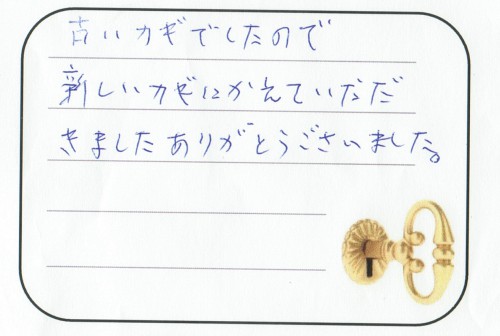 古いカギでしたので
新しいカギにかえていただ
きましたありがとうございました。